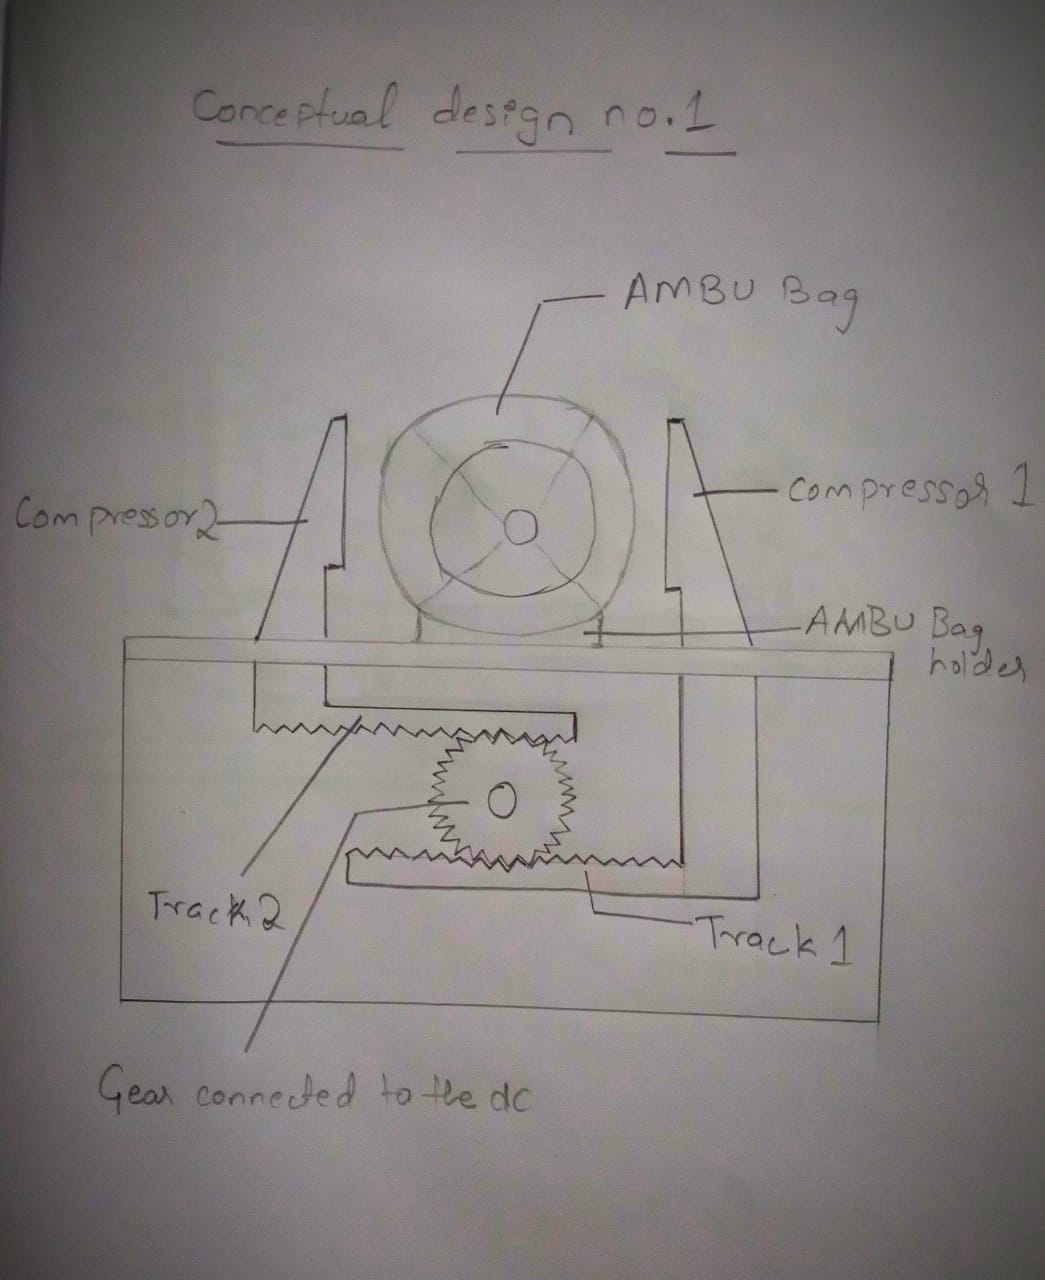 Conceptual design no.1
AMBU Bag
Compressor 2
Compressor 1
AMBU Bag
holder
Track 2
Track 1
Gear connected to the dc